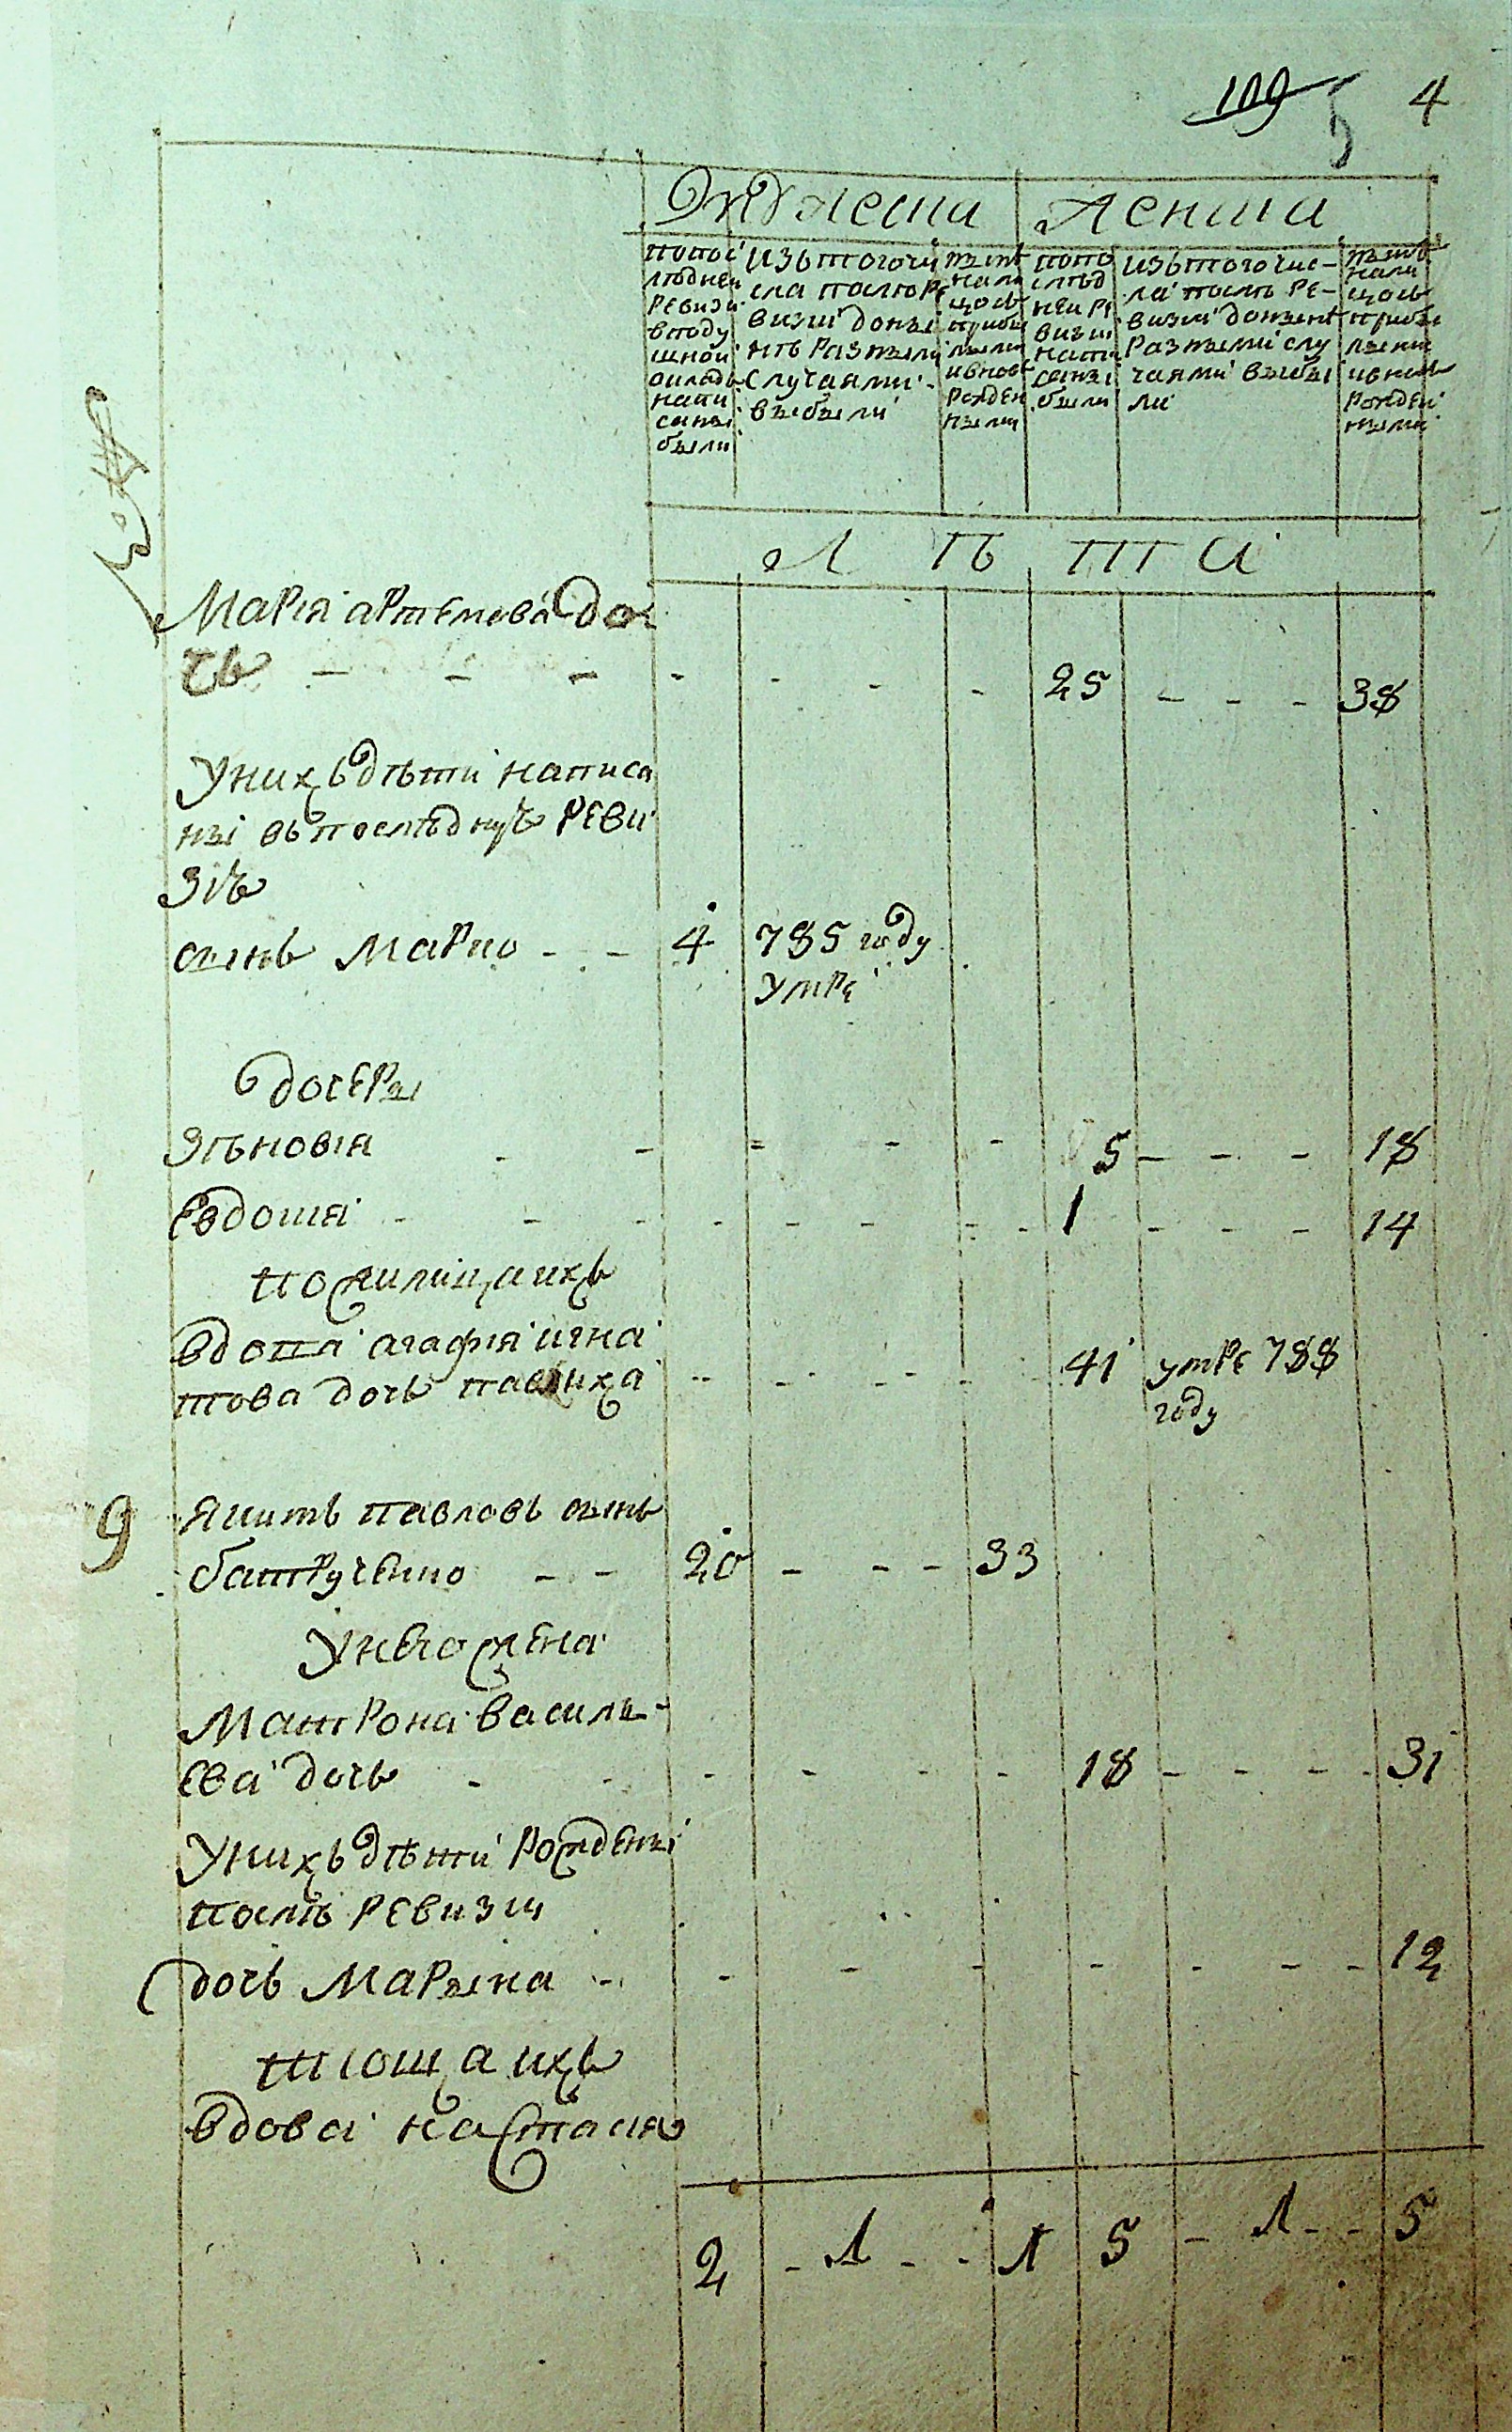 109 5 4
Мужеска Женска
попос
лѣдней
ревизи
вподу
шной
окладъ
напи
саны
были
изътогочи
сла послѣре
визии донын
нѣ разными
случаями
выбыли
нынѣ
нали
цось
прибы
лыми
ивнов
рожден
ными
попо
слѣд
ней ре
визии
напи
саны
были
изътого чис-
ла послѣ ре-
визии донынѣ
разными слу
чаями выбы
ли
нынѣ
нали
цось
прибы
лыми
ивновь
рожден
ными
Л Ѣ Т А
Марія артемова до
чь - - - - - - - 25 - - - 38
Унихъ дѣти написа
ны въпослѣдную реви
зію
сынъ Марко - - 4 785 году
умре
дочеры
Зѣновія - - - - - 5 - - - 18
Евдокия - - - - - - - 1 - - - 14
помачиха ихъ
вдова агафія игна
това дочь - - - - 41 умре 788
году
9 Якимъ павловъ сынъ
батрученко - - 20 - - - 33
Унего жена
Матрона василь-
ева дочь - - - - - - 18 - - - - 31
Унихъ дѣти рождены
послѣ ревизии
дочь Марына - - - - - - - - 12
тіоща ихъ
вдова настасия
2 - 1 - - 1 5 - 1 - - 5